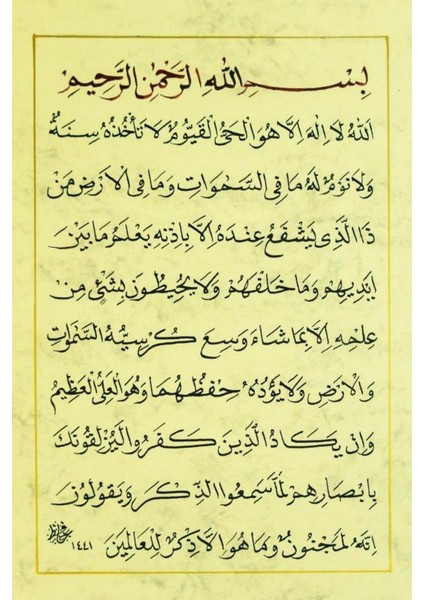 بِسْمِ اللّٰهِ الرَّحْمٰنِ الرَّحِيمِ
اَللّٰهُ لَا اِلٰهَ اِلَّا هُوَ الْحَىُّ الْقَيُّومُ لَا تَأْخُذُهُ سِنَةٌ
وَلَا نَوْمٌ لَهُ مَا فِى السَّمٰوَاتِ وَمَا فِى الْاَرْضِ مَنْ
ذَا الَّذِى يَشْفَعُ عِنْدَهُ اِلَّا بِاِذْنِهِ يَعْلَمُ مَا بَيْنَ
اَيْدِيهِمْ وَمَا خَلْفَهُمْ وَلَا يُحِيطُونَ بِشَىْءٍ مِنْ
عِلْمِهِ اِلَّا بِمَا شَاءَ وَسِعَ كُرْسِيُّهُ السَّمٰوَاتِ
وَالْاَرْضَ وَلَا يَؤُدُهُ حِفْظُهُمَا وَهُوَ الْعَلِىُّ الْعَظِيمُ
وَاِنْ يَكَادُ الَّذِينَ كَفَرُوا لَيُزْلِقُونَكَ
بِاَبْصَارِهِمْ لَمَّا سَمِعُوا الذِّكْرَ وَيَقُولُونَ
اِنَّهُ لَمَجْنُونٌ وَمَا هُوَ اِلَّا ذِكْرٌ لِلْعَالَمِينَ
١٤٤١